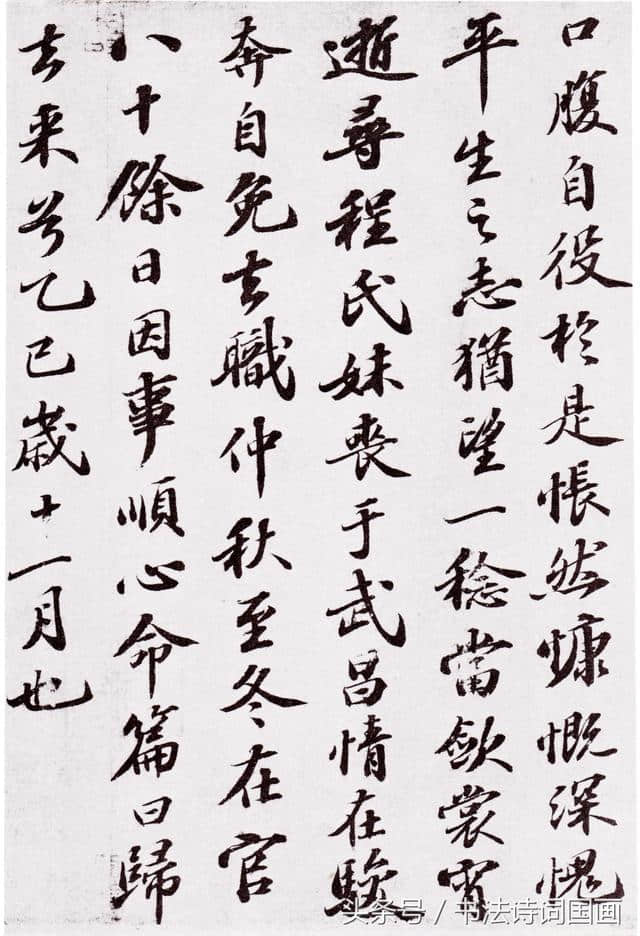 口腹自役於是悵然慷慨深愧
平生之志猶望一稔當歛裳宵
逝尋程氏妹喪于武昌情在駿
奔自免去職仲秋至冬在官
八十餘日因事順心命篇曰歸
去来兮乙巳歲十一月也
头条号 / 书法诗词国画